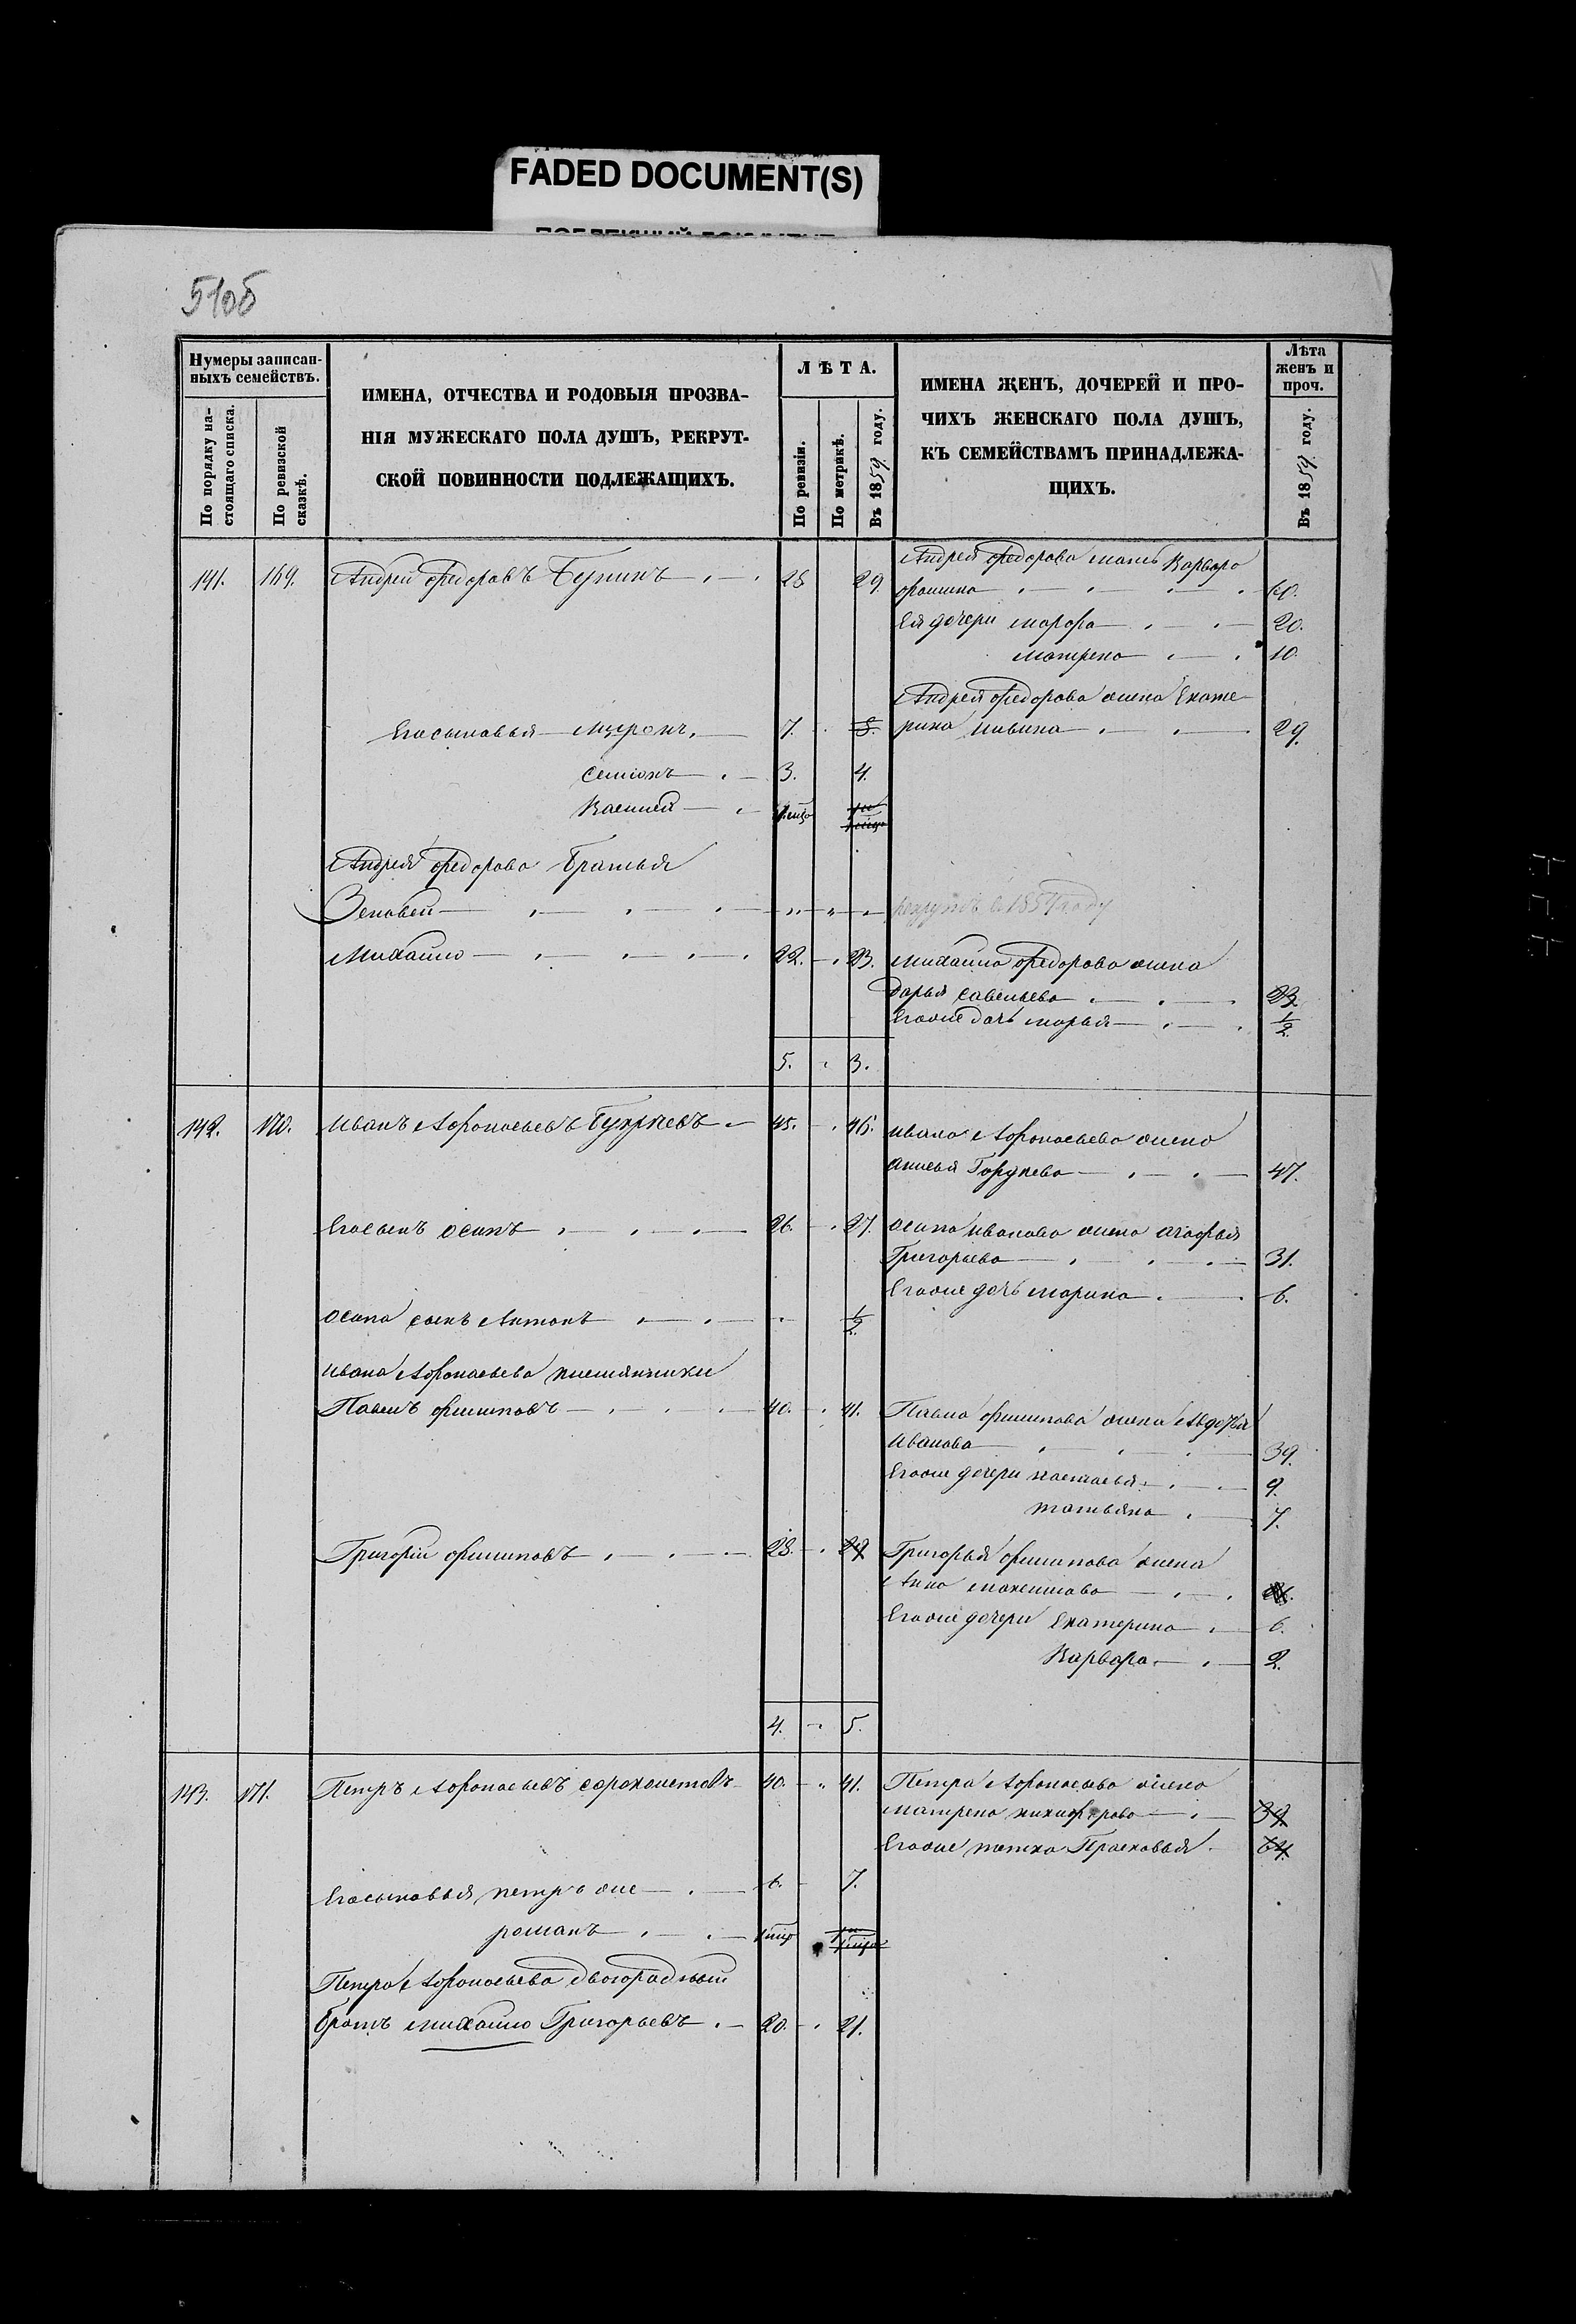 FADED DOCUMENT(S)
51об
Нумеры записан-
ныхъ семействъ.
По порядку на-
стоящаго списка.
По ревизской
сказкѣ.
ИМЕНА, ОТЧЕСТВА И РОДОВЫЯ ПРОЗВА-
НІЯ МУЖЕСКАГО ПОЛА ДУШЪ, РЕКРУТ-
СКОЙ ПОВИННОСТИ ПОДЛЕЖАЩИХЪ.
ЛѢТА.
По ревизіи.
По метрикѣ.
Въ 1859 году.
ИМЕНА ЖЕНЪ, ДОЧЕРЕЙ И ПРО-
ЧИХЪ ЖЕНСКАГО ПОЛА ДУШЪ,
КЪ СЕМЕЙСТВАМЪ ПРИНАДЛЕЖА-
ЩИХЪ.
Лѣта
женъ и
проч.
Въ 1859 году.
141. 169. Андрей Федоровъ Бунинъ 28 29. Андрея Федорова мать Варвара
фомина
Ея дочери марфа 20.
матрена 10.
Андрея Федорова жена Екате
Егосыновья Миронъ 7. 8. рина 29.
Семіонъ 3. 4.
Василей
Андрея Федорова Братья
Зеновей рекрутъ в 185 году
Михайло 22. 23. Михайла Федорова жена
Дарья Савельева 23
Егоже дочь марья 1/2
5. 3.
142. 170. Иванъ Афонасьевъ 45. 46. Ивана Афонасьева жена
47.
Егосынъ осипъ 26. 27. осипа иванова жена агафья
Григорьева 31.
Егоже дочь марина 6.
осипа сынъ Антонъ 1/2
Ивана Афонасьева племянники
Павелъ филиповъ 40. 41. Павла филипова жена Авдотья
Иванова 39.
Егоже дочери настасья 9.
татьяна 7.
Григорій филиповъ 28. 29 Григорья филипова жена
Анна
Егоже дочери Екатерина 6.
Варвара 2.
4. 5.
143. 171. Петръ Афонасьевъ 40. 41. Петра Афонасьева жена
матрена никифорова 39.
Егоже тетка Прасковья 64.
Егосыновья петръ же 6. 7.
романъ
Петра Афонасьева двоюродный
братъ михайло Григорьевъ 20. 21.